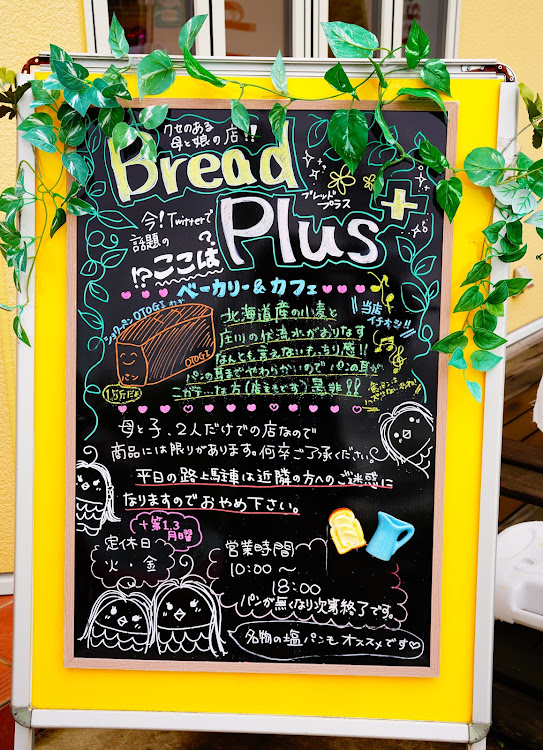 クセのある
母と娘の店!!
Bread
Plus+
ブレッド
プラス
今!Twitterで
話題の
!?ここは?
ベーカリー&カフェ
ショクパン OTOGI
OTOGI
パン
1.5斤だよ
当店
イチオシ!!
北海道産の小麦と
庄川の伏流水がおりなす
なんとも言えないもっちり感!!
パンの耳までやわらかいので パンの耳が
ニガテ…な方(店主もです)是非!!
母と子、2人だけでの店なので
商品には限りがあります。何卒ご了承ください。
平日の路上駐車は近隣の方へのご迷惑に
なりますのでおやめ下さい。
+第1.3
月曜
定休日
火・金
営業時間
10:00〜
18:00
パンが無くなり次第終了です。
名物の塩パンもオススメです♡